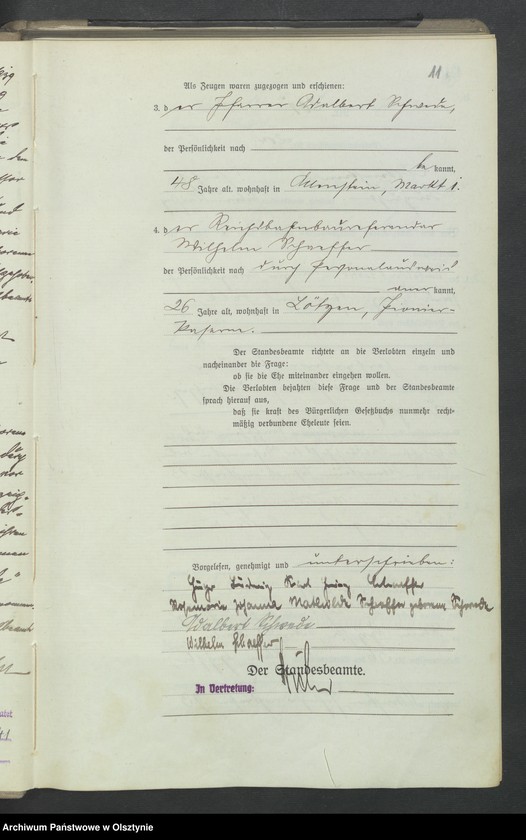 11
Als Zeugen waren zugezogen und erschienen:
3. der Pfarrer Adalbert Schwede,
der Persönlichkeit nach
bekannt,
48 Jahre alt, wohnhaft in Allenstein, Markt 1.
4. der Reichsbahnbaureferendar
Wilhelm Schaeffer
der Persönlichkeit nach durch Personalausweis
anerkannt,
26 Jahre alt, wohnhaft in Lötzen, Pionier-
kaserne.
Der Standesbeamte richtete an die Verlobten einzeln und
nacheinander die Frage:
ob sie die Ehe miteinander eingehen wollen.
Die Verlobten bejahten diese Frage und der Standesbeamte
sprach hierauf aus,
daß sie kraft des Bürgerlichen Gesetzbuchs nunmehr recht-
mäßig verbundene Eheleute seien.
Vorgelesen, genehmigt und unterschrieben:
Ludwig Karl Schaeffer
Rosemarie Johanna Mathilde Schaeffer geborene Schwede
Adalbert Schwede
Wilhelm Schaeffer
Der Standesbeamte.
In Vertretung:
Archiwum Państwowe w Olsztynie